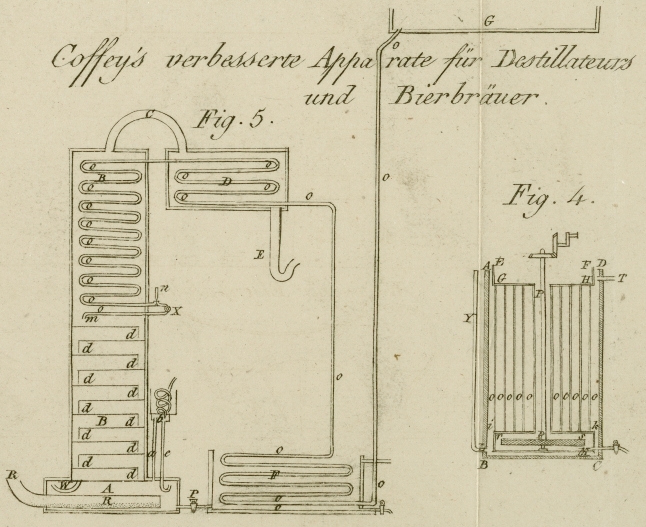 G
Coffey's verbesserte Apparate für Destillateurs
und Bierbräuer.
Fig. 5.
C
B
D
E
Fig. 4.
A E F D
G H T
P
Y
n
m X
d d
d d
d d
B d
d d
d d
b
a c
o
F
R W A
R
P
o o o o o o o o o
i k
B C